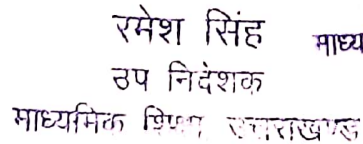 रमेश सिंह माध्य
उप निदेशक
माध्यमिक शिक्षा उत्तराखण्ड